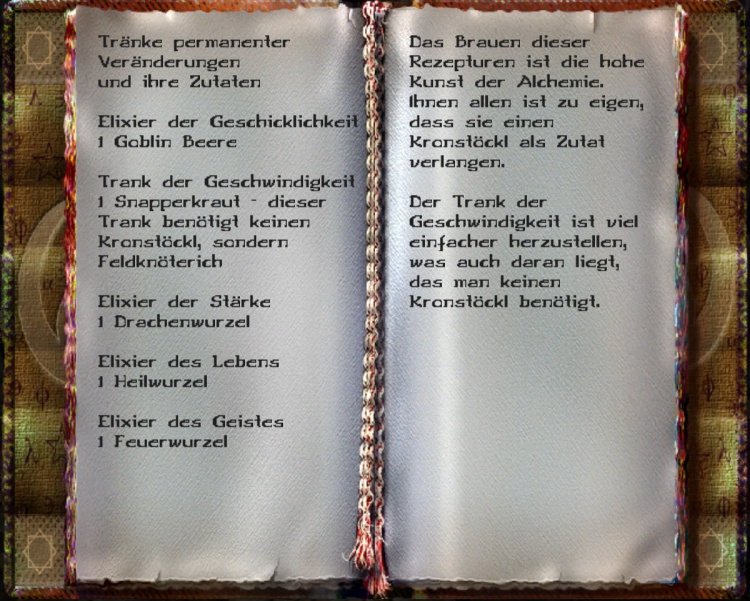 Tränke permanenter
Veränderungen
und ihre Zutaten
Elixier der Geschicklichkeit
1 Goblin Beere
Trank der Geschwindigkeit
1 Snapperkraut - dieser
Trank benötigt keinen
Kronstöckl, sondern
Feldknöterich
Elixier der Stärke
1 Drachenwurzel
Elixier des Lebens
1 Heilwurzel
Elixier des Geistes
1 Feuerwurzel
Das Brauen dieser
Rezepturen ist die hohe
Kunst der Alchemie.
Ihnen allen ist zu eigen,
dass sie einen
Kronstöckl als Zutat
verlangen.
Der Trank der
Geschwindigkeit ist viel
einfacher herzustellen,
was auch daran liegt,
das man keinen
Kronstöckl benötigt.